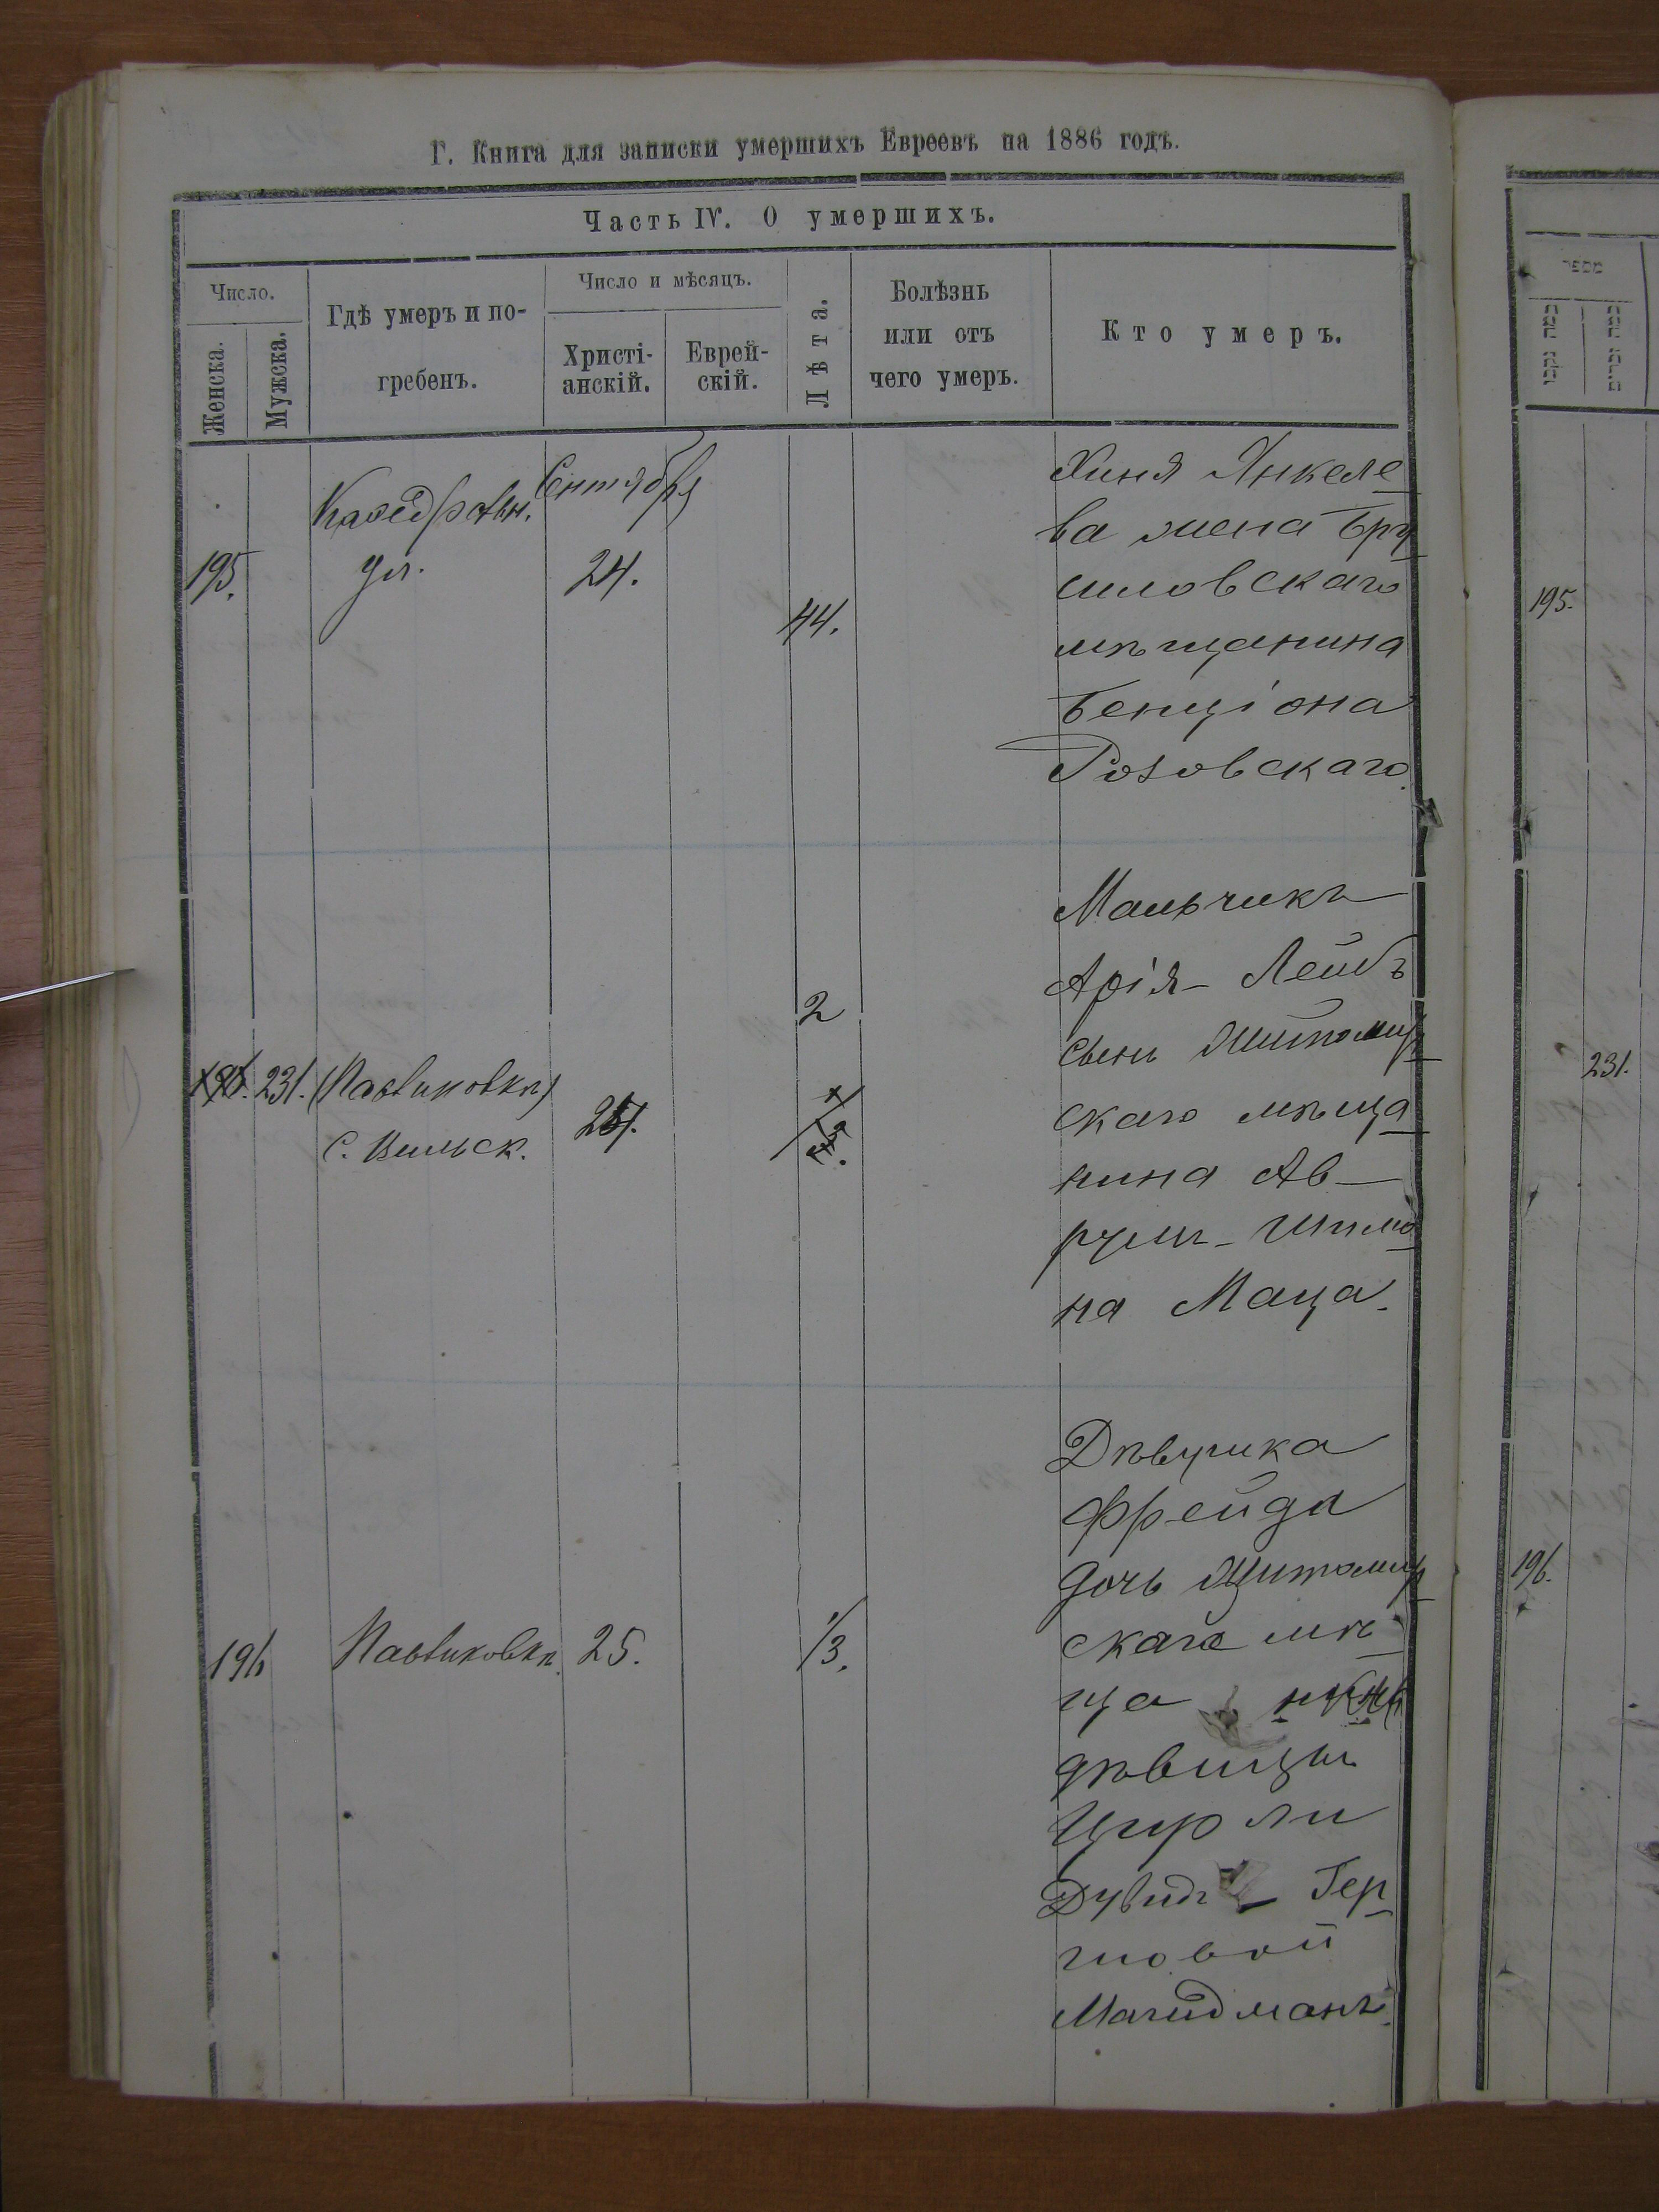 Г. Книга для записки умершихъ Евреевъ на 1886 годъ.
Часть IV. О умершихъ.
Число.
Женска.
Мужска.
Гдѣ умеръ и по-
гребенъ.
Число и мѣсяцъ.
Христі-
анскій.
Еврей-
скій.
Лѣта.
Болѣзнь
или отъ
чего умеръ.
Кто умеръ.
מספר
195.
Каѳедральн.
ул.
Сентября
24.
44.
Хиня Янкеле
ва жена Бру
силовскаго
мѣщанина
Бенціона
Розовскаго.
195.
231.
(Павликовка)
С. Вильск.
2
Мальчикъ
Арія - Лейбъ
сынъ Житомир
скаго мѣща
нина Ав
румъ - Шимо
на Маца.
231.
196
Павликовка.
25.
1/3.
Дѣвушка
Фрейда
дочь Житомир
скаго мѣ
ща
дѣвицы
Цирли
Дувидъ - Гер
шовой
Магидманъ.
196.